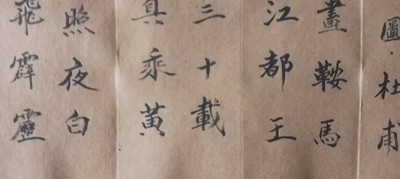 圖·杜甫
畫鞍馬
江都王
三十載
真乘黃
照夜白
飛霹